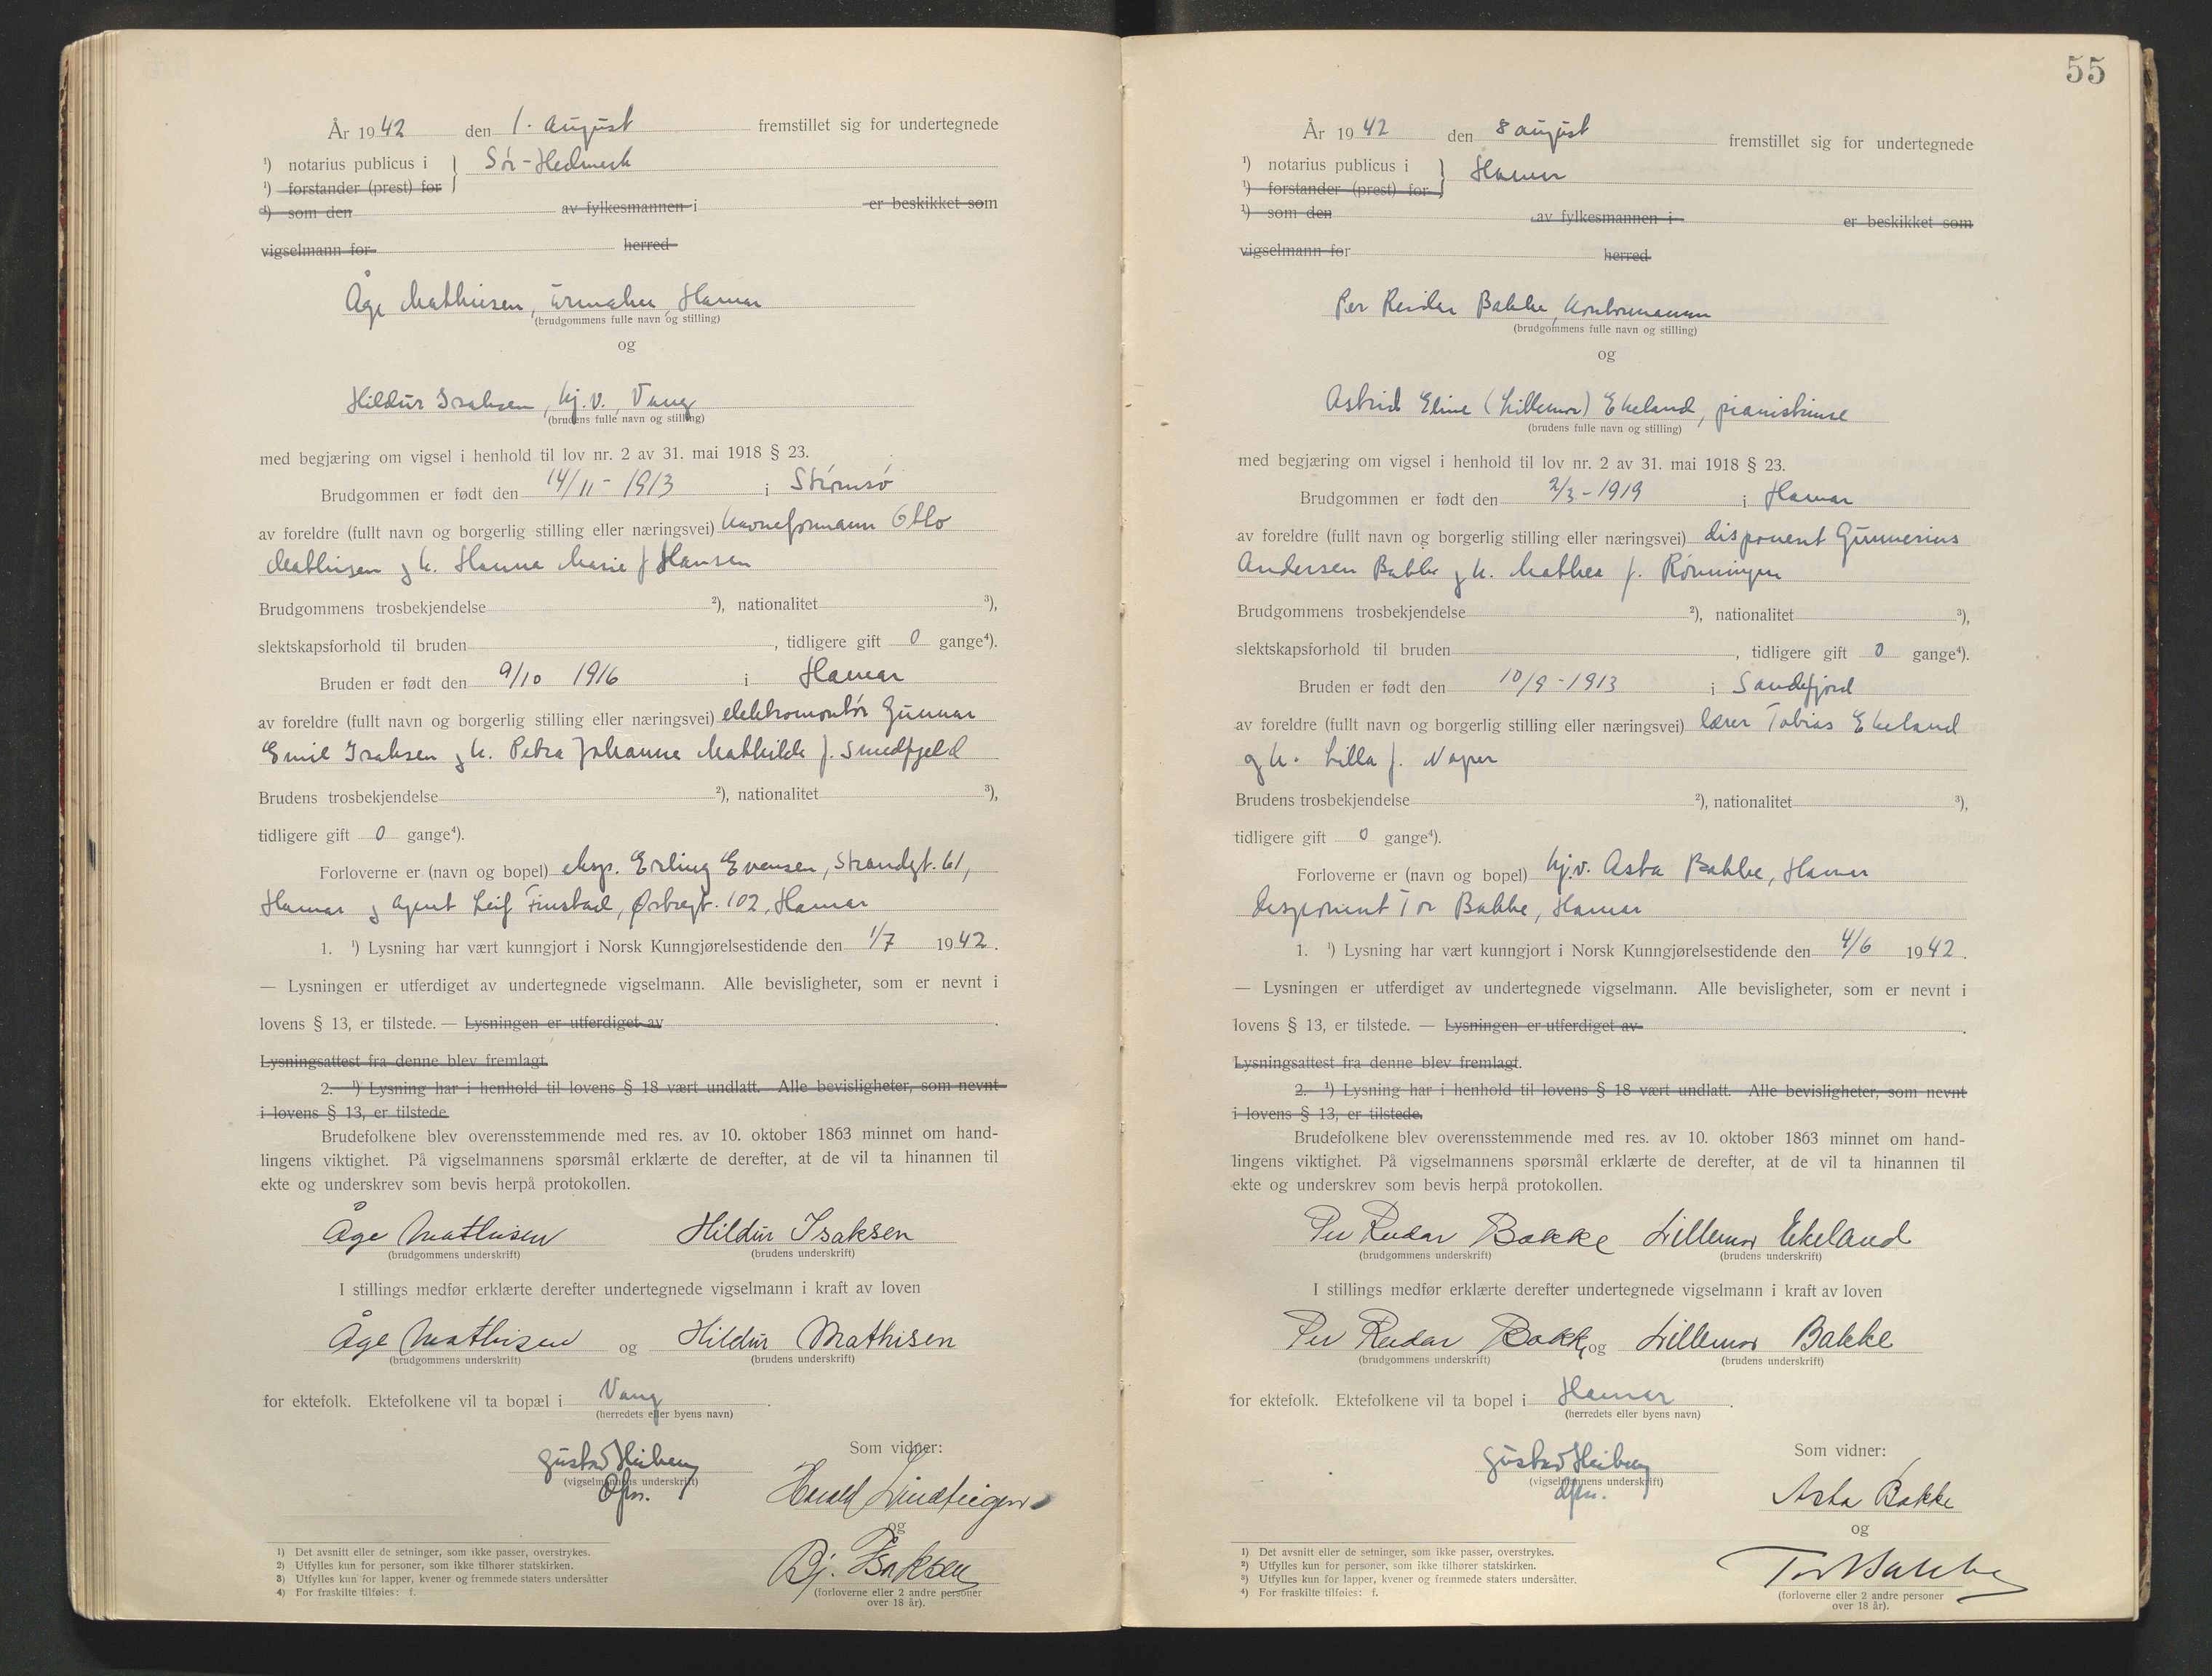 År 1942 den 1. august fremstillet sig for undertegnede
¹) notarius publicus i } Sør-Hedmark
¹) forstander (prest) for
¹) som den av fylkesmannen i er beskikket som
vigselmann for herred
Åge Mathisen, urmaker, Hamar
(brudgommens fulle navn og stilling)
og
Hildur Isaksen, hj.v., Vang
(brudens fulle navn og stilling)
med begjæring om vigsel i henhold til lov nr. 2 av 31. mai 1918 § 23.
Brudgommen er født den 14/11 - 1913 i Strømsø
av foreldre (fullt navn og borgerlig stilling eller næringsvei) havneformann Otto
Mathisen og h. Hanna Marie f Hansen
Brudgommens trosbekjendelse ²), nationalitet ³),
slektskapsforhold til bruden , tidligere gift 0 gange⁴).
Bruden er født den 9/10 1916 i Hamar
av foreldre (fullt navn og borgerlig stilling eller næringsvei) elektromontør Gunnar
Emil Isaksen og h. Petra Johanne Mathilde f. Smedfjeld
Brudens trosbekjendelse ²), nationalitet ³),
tidligere gift 0 gange⁴).
Forloverne er (navn og bopel) eksp. Erling Evensen, Strandgt. 61,
Hamar og agent Leif Finstad, Østregt. 102, Hamar
1. ¹) Lysning har vært kunngjort i Norsk Kunngjørelsestidende den 1/7 1942.
— Lysningen er utferdiget av undertegnede vigselmann. Alle bevisligheter, som er nevnt i
lovens § 13, er tilstede. — Lysningen er utferdiget av .
Lysningsattest fra denne blev fremlagt.
2. ¹) Lysning har i henhold til lovens § 18 vært undlatt. Alle bevisligheter, som nevnt
i lovens § 13, er tilstede
Brudefolkene blev overensstemmende med res. av 10. oktober 1863 minnet om hand-
lingens viktighet. På vigselmannens spørsmål erklærte de derefter, at de vil ta hinannen til
ekte og underskrev som bevis herpå protokollen.
Åge Mathisen Hildur Isaksen
(brudgommens underskrift) (brudens underskrift)
I stillings medfør erklærte derefter undertegnede vigselmann i kraft av loven
Åge Mathisen og Hildur Mathisen
(brudgommens underskrift) (brudens underskrift)
for ektefolk. Ektefolkene vil ta bopæl i Vang .
(herredets eller byens navn)
Som vidner:
Gustav Heiberg
(vigselmannens underskrift)
Harald
og
Bj. Isaksen
(forloverne eller 2 andre personer
over 18 år).
¹) Det avsnitt eller de setninger, som ikke passer, overstrykes.
²) Utfylles kun for personer, som ikke tilhører statskirken.
³) Utfylles kun for lapper, kvener og fremmede staters undersåtter
⁴) For fraskilte tilføies: f.
55
År 1942 den 8 august fremstillet sig for undertegnede
¹) notarius publicus i } Hamar
¹) forstander (prest) for
¹) som den av fylkesmannen i er beskikket som
vigselmann for herred
Per Reidar Bakke, kontormann
(brudgommens fulle navn og stilling)
og
Astrid Eline (Lillemor) Ekeland, pianistinne
(brudens fulle navn og stilling)
med begjæring om vigsel i henhold til lov nr. 2 av 31. mai 1918 § 23.
Brudgommen er født den 2/3 - 1919 i Hamar
av foreldre (fullt navn og borgerlig stilling eller næringsvei) disponent Gunnerius
Andersen Bakke og h. Mathea f. Rønningen
Brudgommens trosbekjendelse ²), nationalitet ³),
slektskapsforhold til bruden , tidligere gift 0 gange⁴).
Bruden er født den 10/9 - 1913 i Sandefjord
av foreldre (fullt navn og borgerlig stilling eller næringsvei) lærer Tobias Ekeland
og h. Lilla f. Naper
Brudens trosbekjendelse ²), nationalitet ³),
tidligere gift 0 gange⁴).
Forloverne er (navn og bopel) hj.v. Asta Bakke, Hamar
disponent Tor Bakke, Hamar
1. ¹) Lysning har vært kunngjort i Norsk Kunngjørelsestidende den 4/6 1942.
— Lysningen er utferdiget av undertegnede vigselmann. Alle bevisligheter, som er nevnt i
lovens § 13, er tilstede. — Lysningen er utferdiget av .
Lysningsattest fra denne blev fremlagt.
2. ¹) Lysning har i henhold til lovens § 18 vært undlatt. Alle bevisligheter, som nevnt
i lovens § 13, er tilstede.
Brudefolkene blev overensstemmende med res. av 10. oktober 1863 minnet om hand-
lingens viktighet. På vigselmannens spørsmål erklærte de derefter, at de vil ta hinannen til
ekte og underskrev som bevis herpå protokollen.
Per Reidar Bakke Lillemor Ekeland
(brudgommens underskrift) (brudens underskrift)
I stillings medfør erklærte derefter undertegnede vigselmann i kraft av loven
Per Reidar Bakke og Lillemor Bakke
(brudgommens underskrift) (brudens underskrift)
for ektefolk. Ektefolkene vil ta bopel i Hamar .
(herredets eller byens navn)
Som vidner:
Gustav Heiberg
(vigselmannens underskrift)
Asta Bakke
og
Tor Bakke
(forloverne eller 2 andre personer
over 18 år).
¹) Det avsnitt eller de setninger, som ikke passer, overstrykes.
²) Utfylles kun for personer, som ikke tilhører statskirken.
³) Utfylles kun for lapper, kvener og fremmede staters undersåtter.
⁴) For fraskilte tilføies: f.